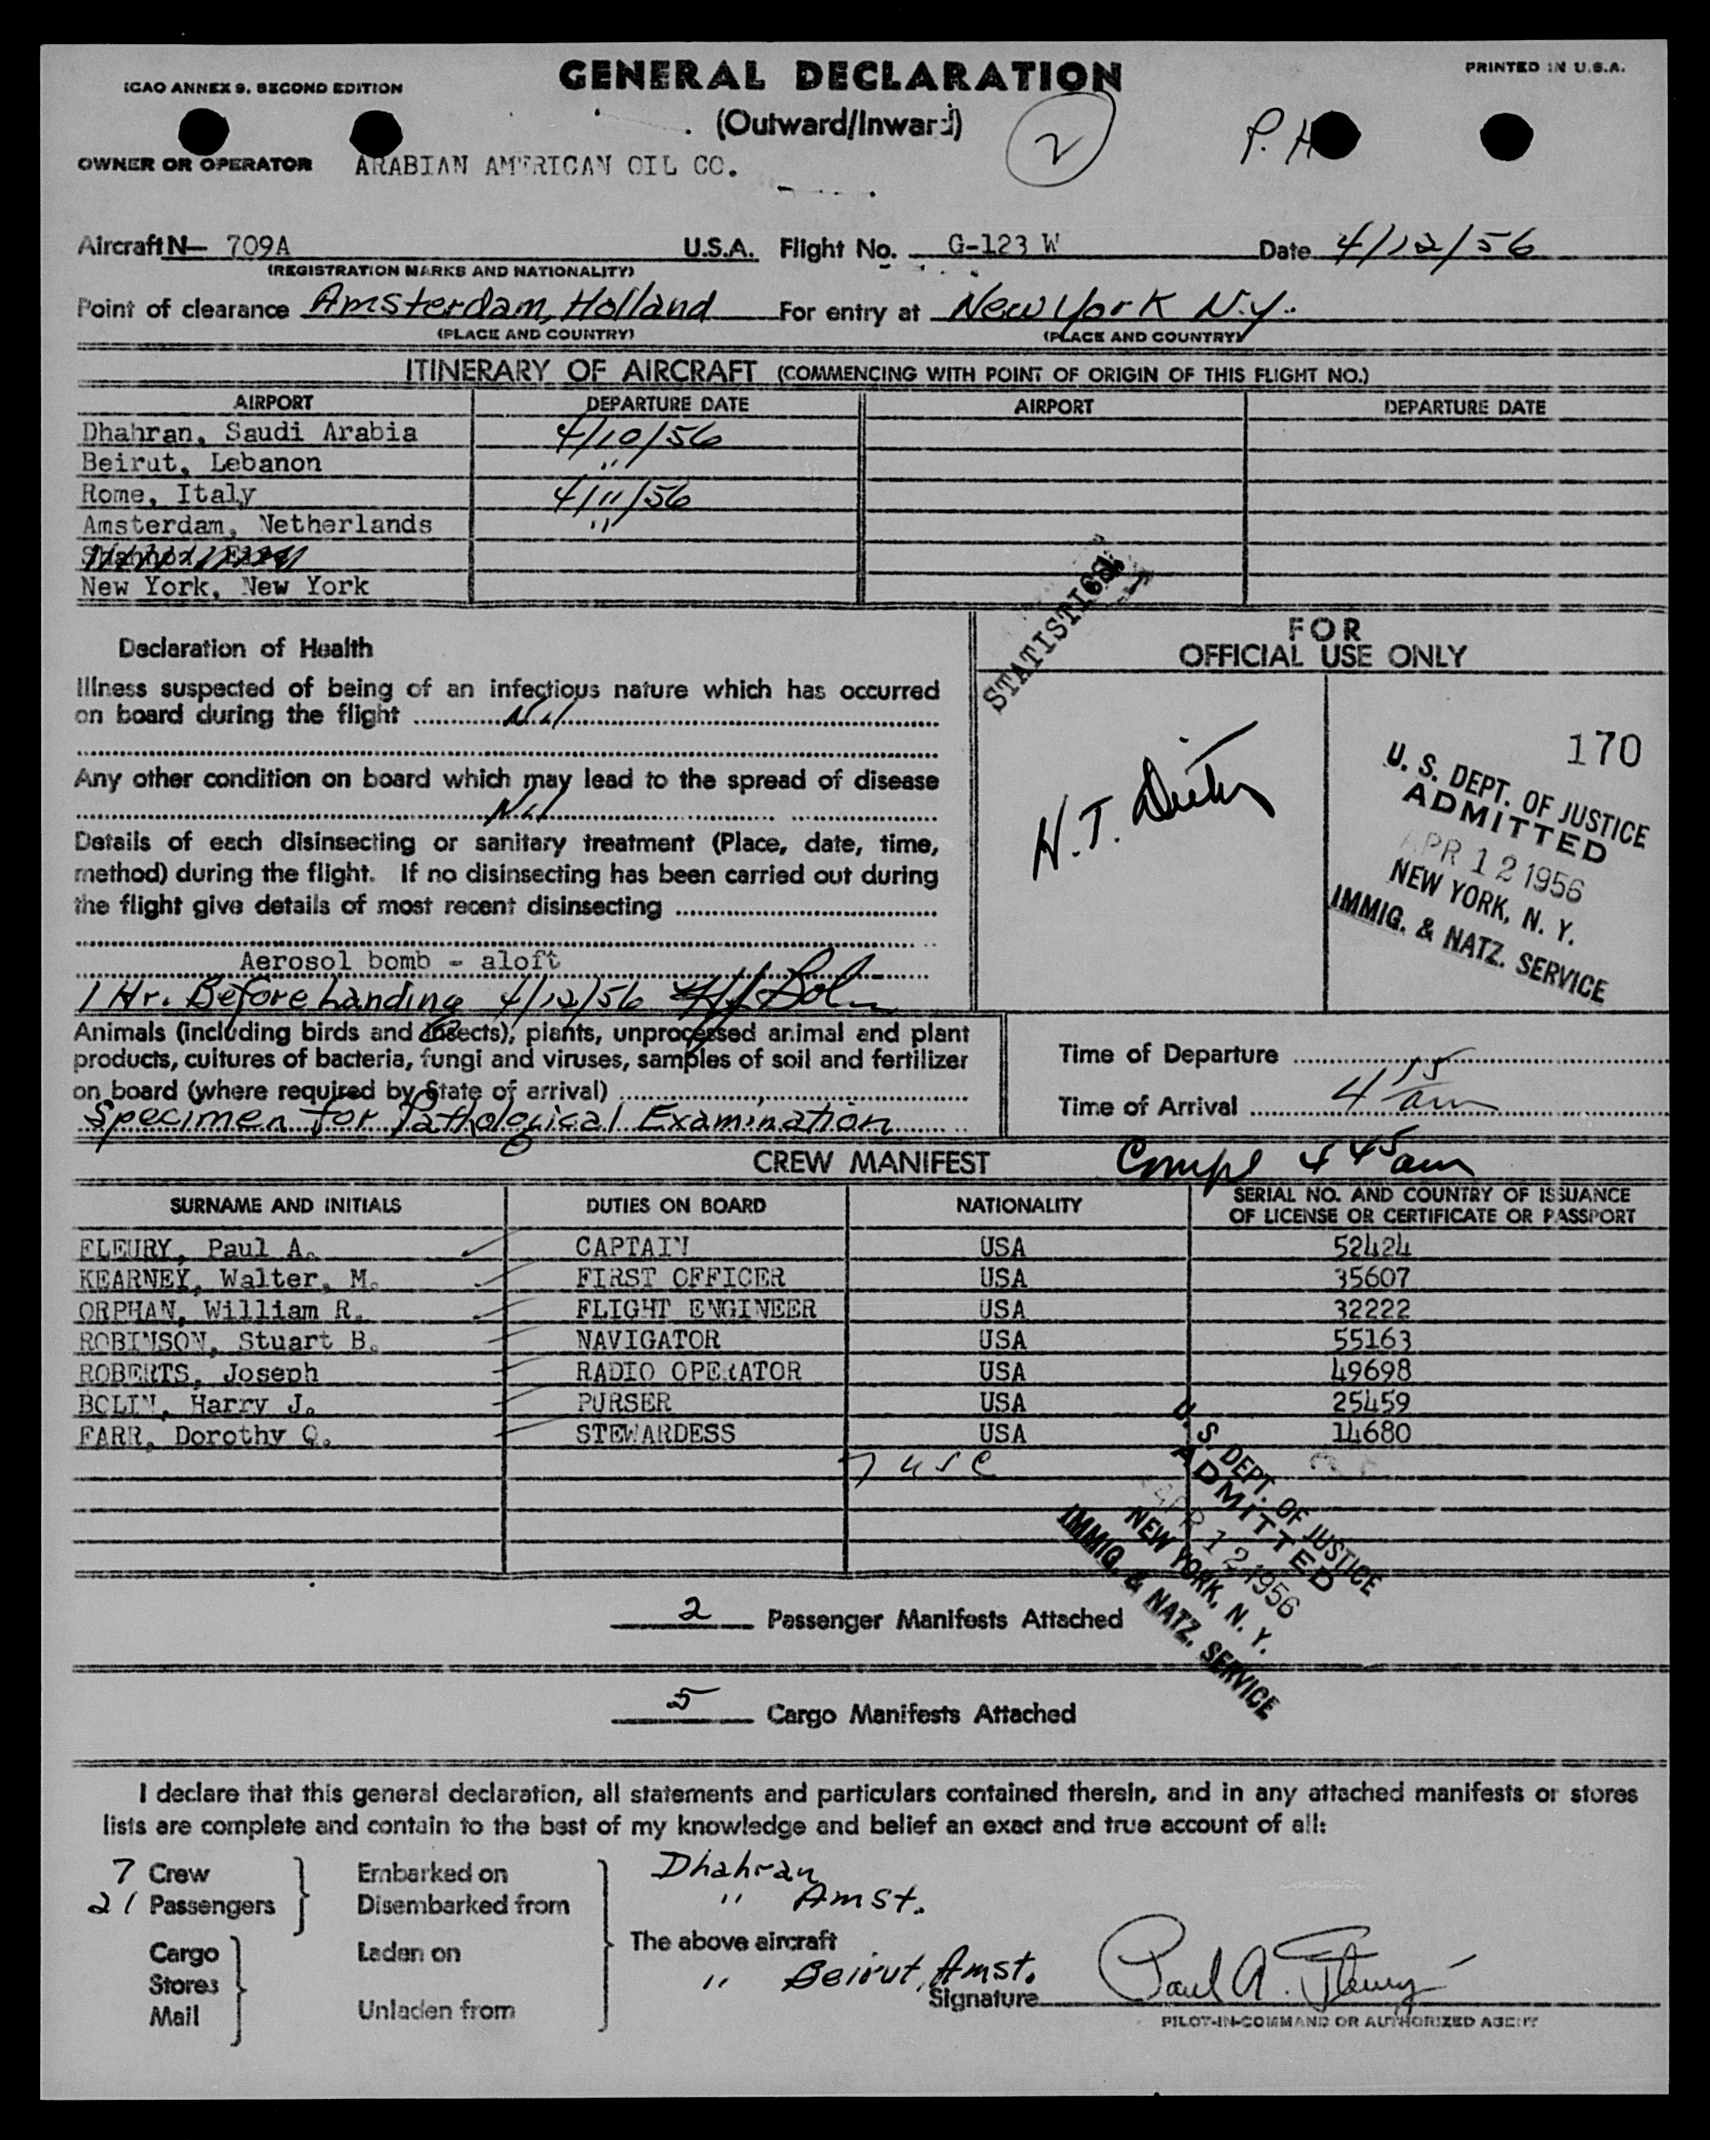 ICAO ANNEX 9, SECOND EDITION
GENERAL DECLARATION
PRINTED IN U.S.A.
(Outward/Inward)
2
P. H
OWNER OR OPERATOR ARABIAN AMERICAN OIL CO.
Aircraft N— 709A U.S.A. Flight No. G-123 W Date 4/12/56
(REGISTRATION MARKS AND NATIONALITY)
Point of clearance Amsterdam, Holland For entry at New York N.Y.
(PLACE AND COUNTRY) (PLACE AND COUNTRY)
ITINERARY OF AIRCRAFT (COMMENCING WITH POINT OF ORIGIN OF THIS FLIGHT NO.)
AIRPORT DEPARTURE DATE AIRPORT DEPARTURE DATE
Dhahran, Saudi Arabia 4/10/56
Beirut, Lebanon "
Rome, Italy 4/11/56
Amsterdam, Netherlands "
New York, New York
STATISTICS
Declaration of Health
Illness suspected of being of an infectious nature which has occurred
on board during the flight Nil
Any other condition on board which may lead to the spread of disease
Nil
Details of each disinsecting or sanitary treatment (Place, date, time,
method) during the flight. If no disinsecting has been carried out during
the flight give details of most recent disinsecting
Aerosol bomb - aloft
1 Hr. Before Landing 4/12/56
FOR
OFFICIAL USE ONLY
H.T.
170
U. S. DEPT. OF JUSTICE
ADMITTED
APR 12 1956
NEW YORK, N. Y.
IMMIG. & NATZ. SERVICE
Animals (including birds and insects), plants, unprocessed animal and plant
products, cultures of bacteria, fungi and viruses, samples of soil and fertilizer
on board (where required by State of arrival)
Specimen for Pathological Examination
Time of Departure
Time of Arrival 4 15 am
CREW MANIFEST Compl 4 45 am
SURNAME AND INITIALS DUTIES ON BOARD NATIONALITY SERIAL NO. AND COUNTRY OF ISSUANCE
OF LICENSE OR CERTIFICATE OR PASSPORT
FLEURY, Paul A. CAPTAIN USA 52424
KEARNEY, Walter, M. FIRST OFFICER USA 35607
ORPHAN, William R. FLIGHT ENGINEER USA 32222
ROBINSON, Stuart B. NAVIGATOR USA 55163
ROBERTS, Joseph RADIO OPERATOR USA 49698
BOLIN, Harry J. PURSER USA 25459
FARR, Dorothy Q. STEWARDESS USA 14680
7 usc
U. S. DEPT. OF JUSTICE
ADMITTED
APR 12 1956
NEW YORK, N. Y.
IMMIG. & NATZ. SERVICE
2 Passenger Manifests Attached
5 Cargo Manifests Attached
I declare that this general declaration, all statements and particulars contained therein, and in any attached manifests or stores
lists are complete and contain to the best of my knowledge and belief an exact and true account of all:
7 Crew Embarked on Dhahran
21 Passengers Disembarked from " Amst.
The above aircraft
Cargo Laden on
Stores " Beirut, Amst.
Mail Unladen from
Signature Paul A. Fleury
PILOT-IN-COMMAND OR AUTHORIZED AGENT